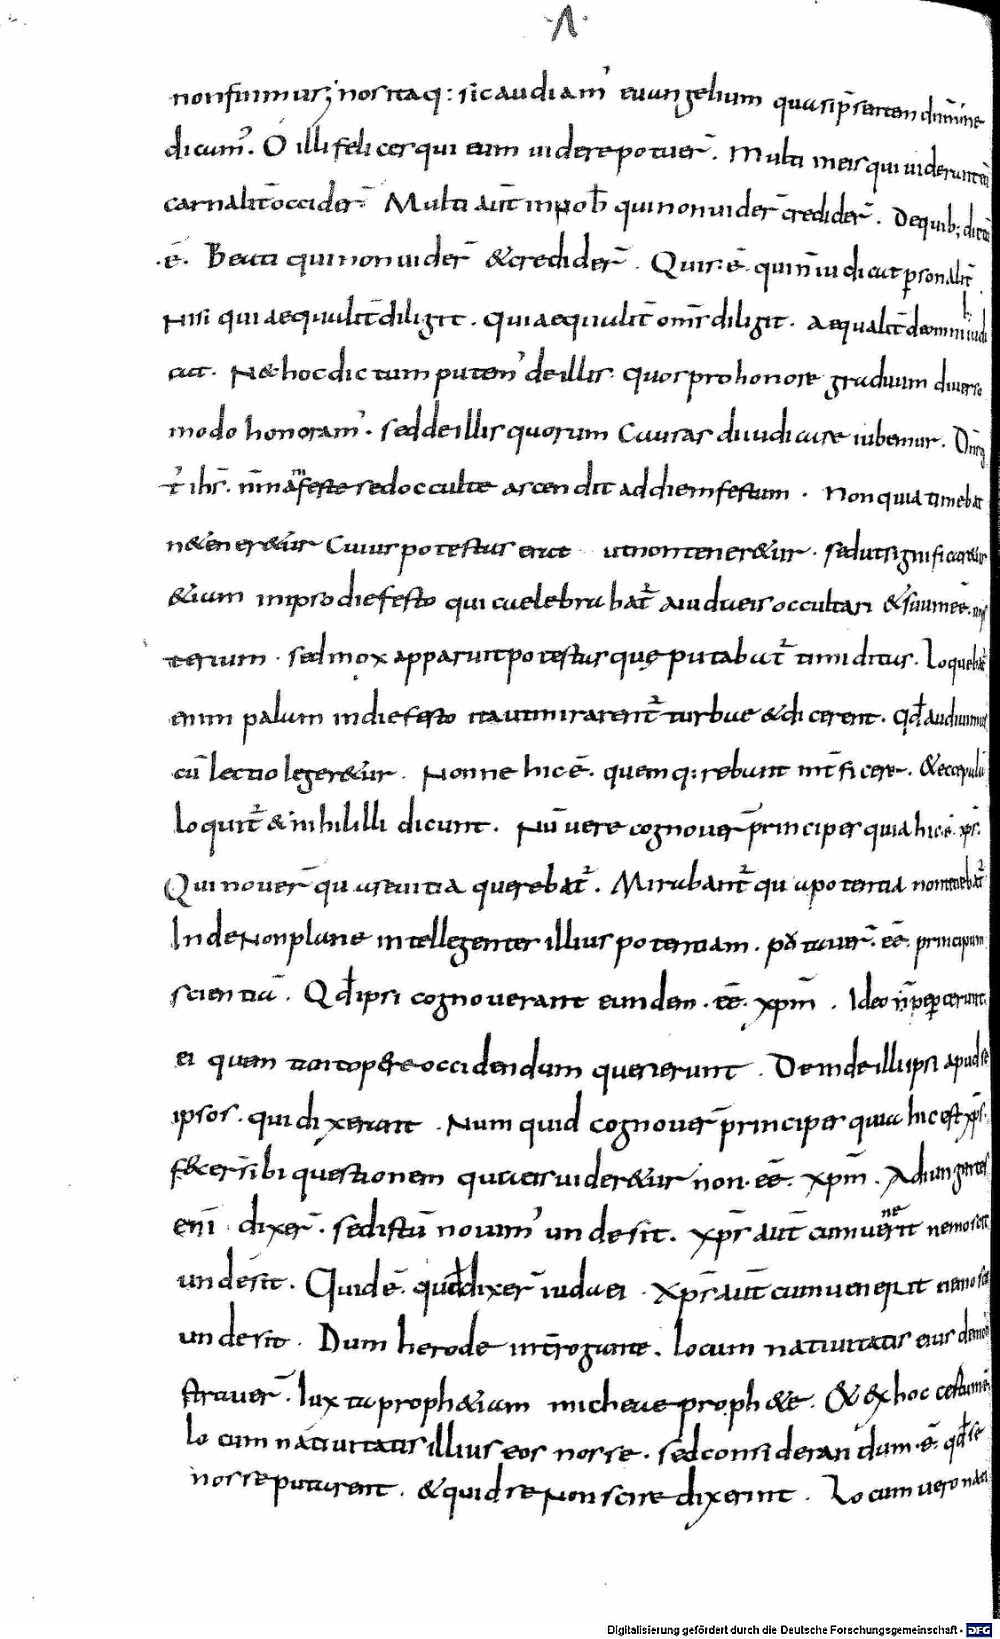 non simus; nos itaq: sic audiam' euangelium quasi p̄sentem dn̄m ine
dicam'. O illi felices qui eum uidere potuer̄. Multi in eis qui uiderunt eū
carnalit̄ occider̄. Multi aut̄ in nob̄ qui non uider̄ credider̄. De quib; dictū
·ē· Beati qui non uider̄ & credider̄. Quis·ē· qui n̄ iudicat p̱sonalit̄
Nisi qui aequalit̄ diligit. qui aequalit̄ om̄s diligit. Aequalit̄ de omnib iudi
cat. Ne hoc dictum putem' de illis. quos pro honore graduum diuerso
modo honoram'. sed de illis quorum causas diiudicare iubemur. Dn̄s
ihs̄. n̄ manifeste sed occulte ascendit ad diem festum. Non quia timebat
n& ener&ur Cuius potestas erat ut non tener&ur. sed ut significar&ur
&iam in ipso die festo qui caelebrabat̄ a iudaeis occultari & suum ēē. mis
terium. sed mox apparuit potestas quę putabat̄ timiditas. Loquebat̄
enim palam in die festo ita ut mirarent̄ turbae & dicerent. Qd̄ audiuimus
cū lectio leger&ur. Nonne hic ē. quem q:rebant int̄ficere. & ecce palā
loquit̄ & nihil illi dicunt. Nū uere cognouer̄ principes quia hic·ē· xp̄s.
Qui nouer̄ qua seuitia querebat̄. Mirabant̄ qua potentia non tenebat̄
Inde Non plane intellegentes illius potentiam. putauer̄. ēē. principum
scientiā. Qd̄ ipsi cognouerant eundem. ēē. xpm̄. Ideo n̄ pepercerunt
ei quem tantopere occidendum quesierunt. Deinde illi ipsi apud se
ipsos. qui dixerant. Num quid cognouer̄ principes quia hic est xp̄s.
f&cer̄ sibi questionem qua eis uider&ur non·ēē. xpm̄. Adiungentes
eni dixer̄. sed istū nouim' unde sit. xp̄s aut̄ cum uenerit nemo scit
unde sit. Quid ē. quod dixer̄ iudaei. Xp̄s aut̄ cum uenerit nemo scit
unde sit. Dum herode int̄rogante. locum natiuitatis eius demon
strauer̄. Iuxta proph&iam micheae proph&e. & ex hoc cestumē
locum natiuitatis illius eos nosse. sed considerandum·ē· qd̄ se
nosse putarent. & quid se Non scire dixerint. Locum uero nati
Digitalisierung gefördert durch die Deutsche Forschungsgemeinschaft - DFG